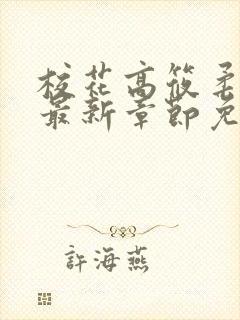 校花高筱柔
最新章節免
許海燕